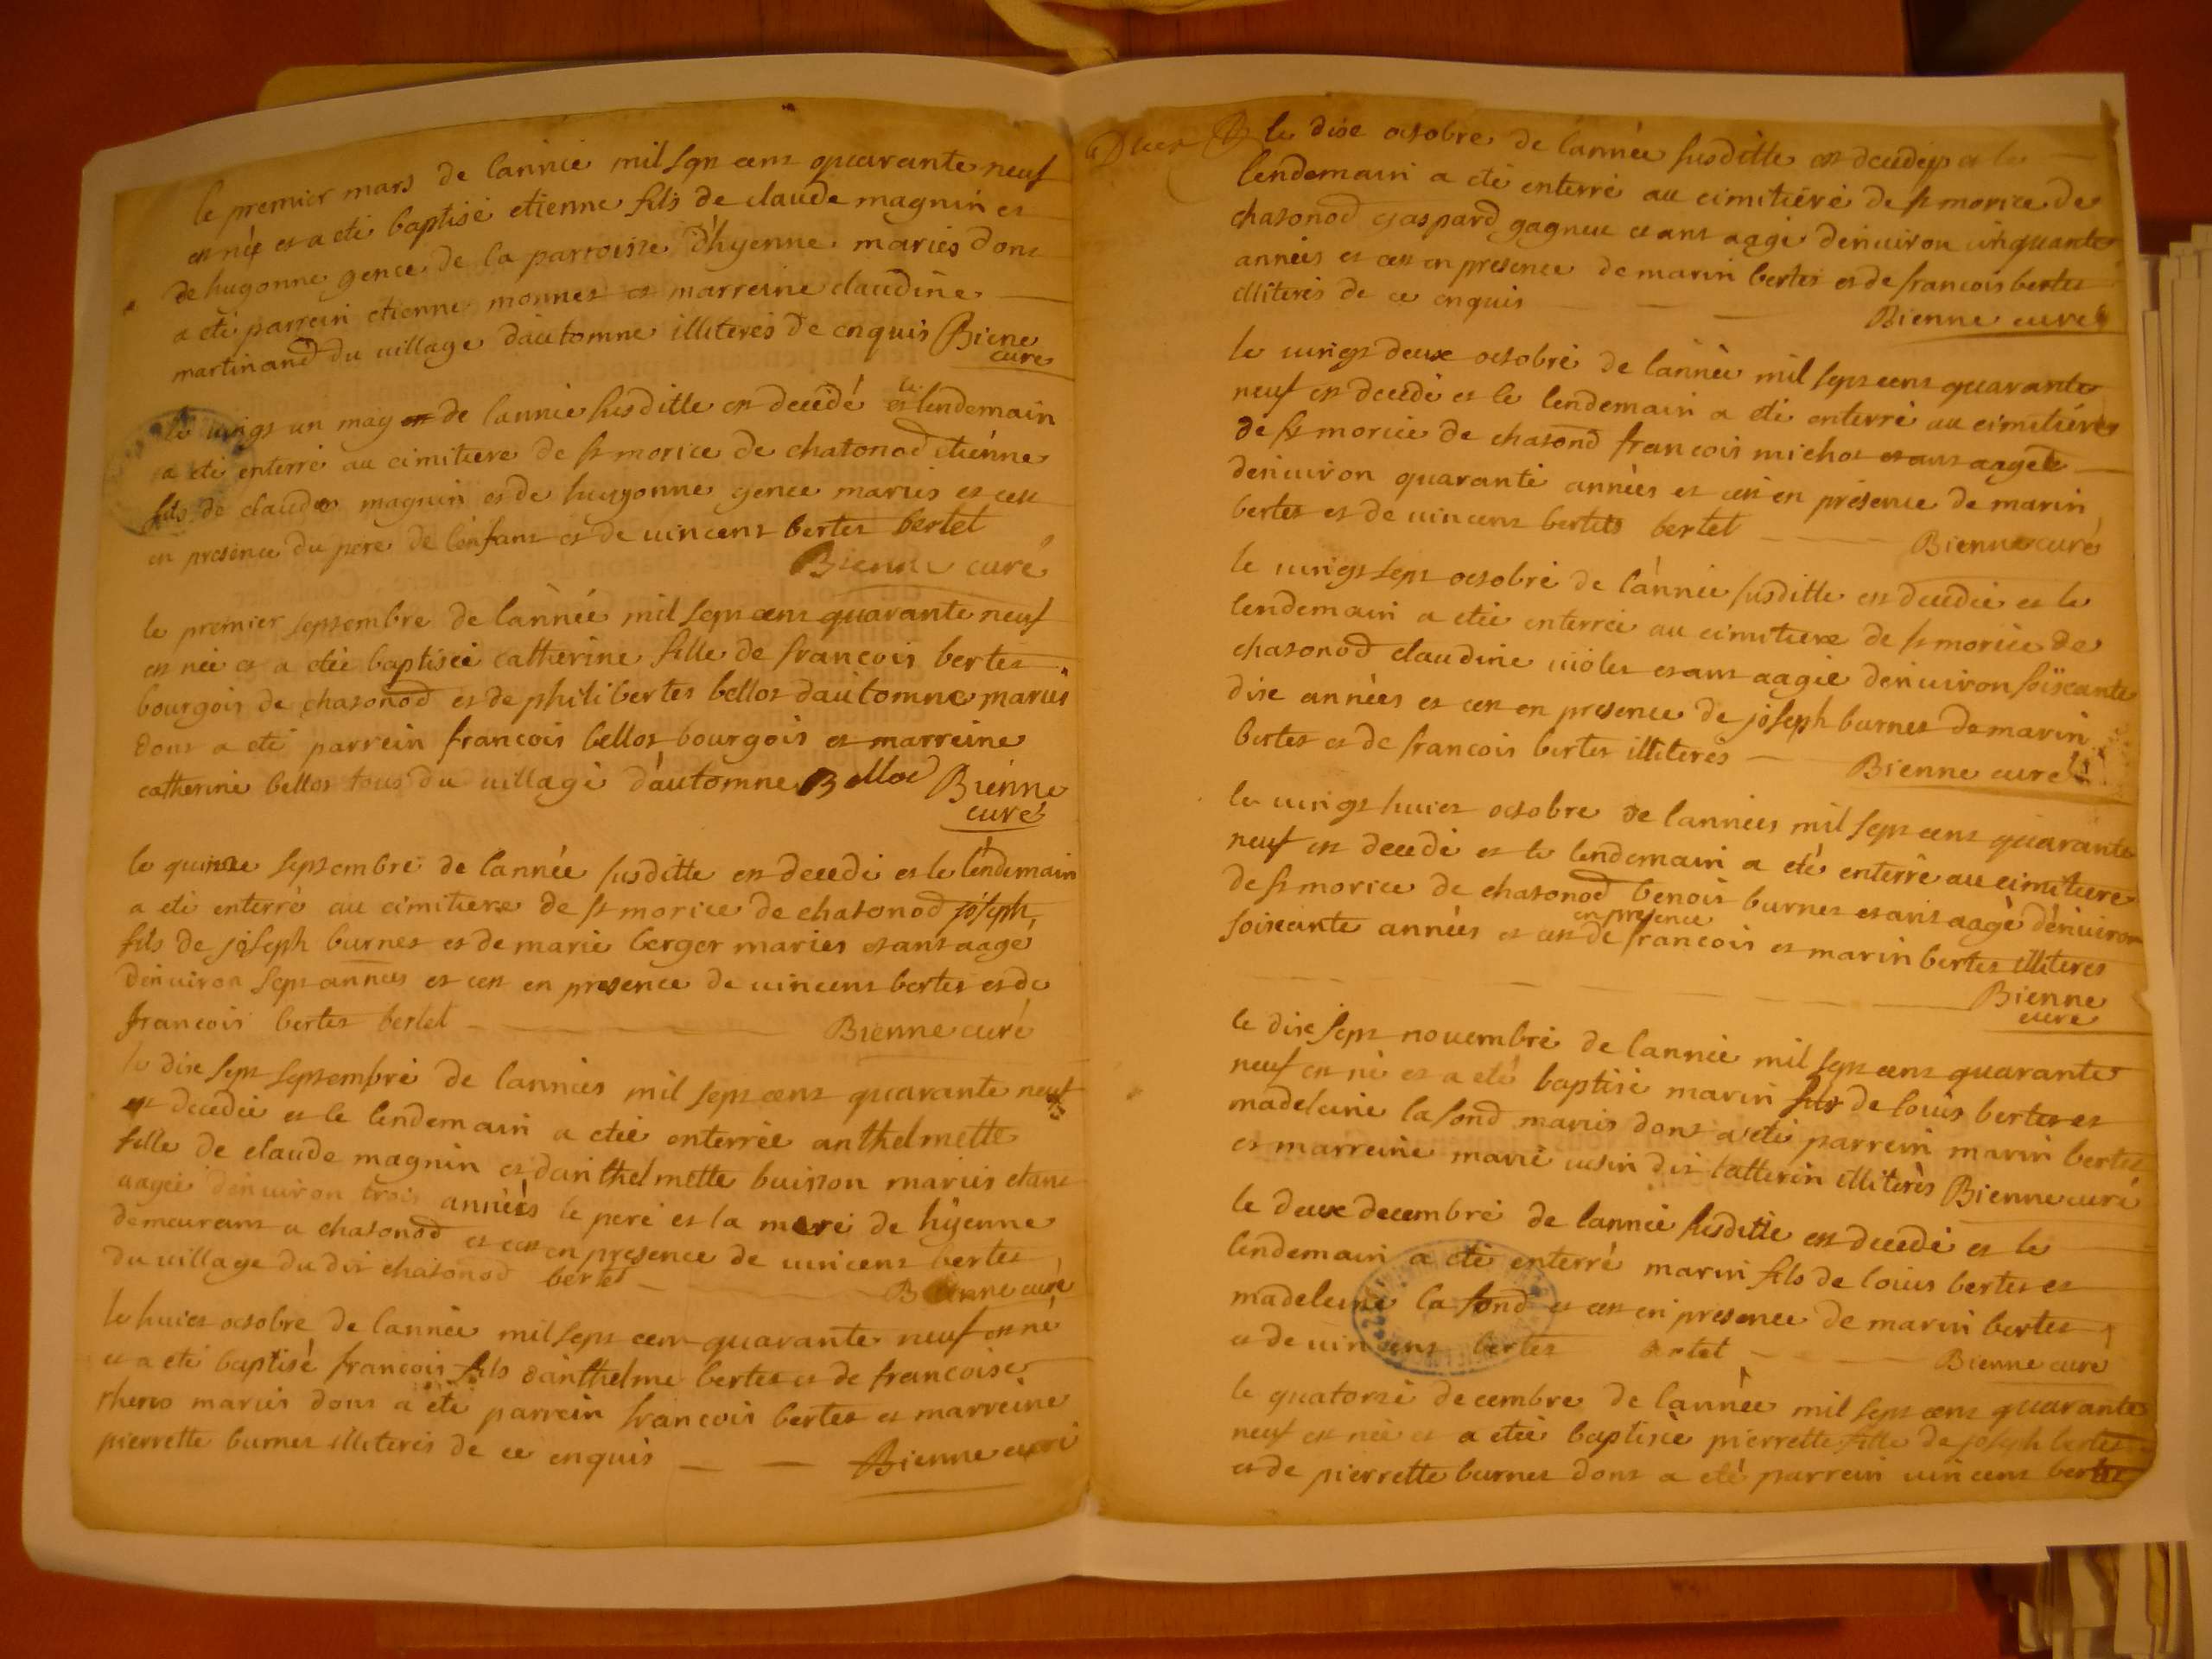 le premier mars de lannée mil sept cent quarante neuf
est né et a eté baptisé etienne fils de claude magnin et
de hugonne gence de la parroisse d'hyenne mariés dont
a eté parrein etienne monnet et marreine claudine
martinand du village d'automne illiterés de enquis Biene
curé
le vingt un may de lannee susditte est decedé et le lendemain
a eté enterré au cimitiere de st morice de chatonod etiénne
fils de claude magnin et de hugonne gence mariés et cest
en presence du pere de l'enfant et de vincent bertet bertet
Bienne curé
le premier septembre de lànnée mil sept cent quarante neuf
est née et a etée baptisée catherine fille de francois bertet
bourgois de chatonod et de philibertes bellot dautomne mariés
dont a eté parrein francois bellot bourgois et marreine
catherine bellot tous du village d'automne Bellod Biénne
curé
le quinze septembre de lannée susditte est decedé et le lendemain
a eté enterré au cimitiere de st morice de chatonod joseph
fils de joseph burnet et de marie berger mariés etant aagé
denviron sept annees et cest en presence de vincent bertet et de
francois bertet bertet Bienne curé
le dix sept septembre de lannées mil sept cent quarante neuf
est decedée et le lendemain a eteé enterrée anthelmette
fille de claude magnin et danthelmette buisson mariés etant
aagée denviron trois années le pere et la mere de hÿenne
demeurant a chatonod et cest en presence de vincent bertet
du village du dit chatonod bertet Bienne curé
le huict octobre de lannée mil sept cent quarante neuf est né
et a eté baptisé francois fils danthelme bertet et de francoise
mariés dont a eté parrein francois bertet et marreine
pierrette burnet illiterés de ce enquis Bienne curé
le dixe octobre de lannée susditte est decedé et le
lendemain a eté enterré au cimitiéré de st morice de
chatonod gaspard gagneux etant aagé denviron cinquante
années et cest en presence de marin bertet et de francois bertet
illiterés de ce enquis Bienne curé
le vingt deux octobre de lànnée mil sept cent quarante
neuf est decedé et le lendemain a eté enterré au cimitiére
de st morice de chatond francois michot etant aagé
denviron quarante années et cest en présence de marin
bertet et de vincent bertet bertet Bienne curé
le vingt sept octobre de lànnée susditte est decedée et le
lendemain a etée enterrée au cimitiere de st morice de
chatonod claudine violet etant aagée denviron soixante
dixe années et cest en presence de joseph burnet de marin
bertet et de francois bertet illiterés Bienne curé
le vingt huict octobre de lannées mil sept cent quarante
neuf est decedé et le lendemain a eté enterré au cimitiere
de st morice de chatonod benoit burnet etant aagé denviron
soixcante années et cest en presence de francois et marin bertet illiteres
Bienne
curé
le dix sept novembre de lannée mil sept cent quarante
neuf est né et a eté baptisé marin fils de louis bertet et
madeleine lafond mariés dont a eté parrein marin bertet
et marreine marie dit illiterés Bienne curé
le deuxe decembre de lannée susditte est decedé et le
lendemain a eté enterré marin fils de louis bertet et
madeleine la fond et cest en presence de marin bertet
et de vincent bertet bertet Bienne curé
le quatorze decembre de lannée mil sept cent quarante
neuf est née et a etée baptisée pierrette fille de joseph bertet
et de pierrette burnet dont a eté parrein vincent bertet